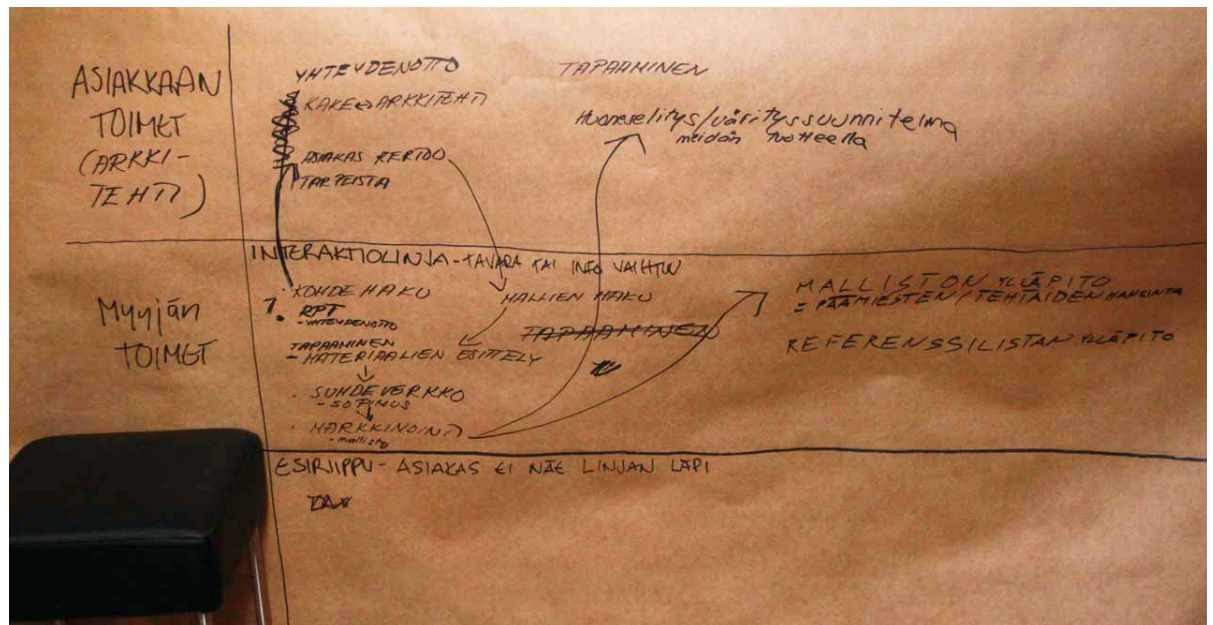 ASIAKKAAN
TOIMET
(ARKKI-
TEHTI)
YHTEYDENOTTO
KAKE↔ARKKITEHTI
ASIAKAS KERTOO
TARPEISTA
TAPAAMINEN
Huoneselitys/värityssuunnitelma
meidän tuotteella
INTERAKTIOLINJA - TAVARA TAI INFO VAIHTUU
Myyjän
TOIMET
· KOHDE HAKU
1. RPT
- YHTEYDENOTTO
TAPAAMINEN
- MATERIAALIEN ESITTELY
· SUHDEVERKKO
- SOPIMUS
· MARKKINOINTI
- mallisto
MALLIEN HAKU
TAPAAMINEN
MALLISTON YLLÄPITO
= PÄÄMIESTEN / TEHTAIDEN HANKINTA
REFERENSSILISTAN YLLÄPITO
ESIRIPPU - ASIAKAS EI NÄE LINJAN LÄPI